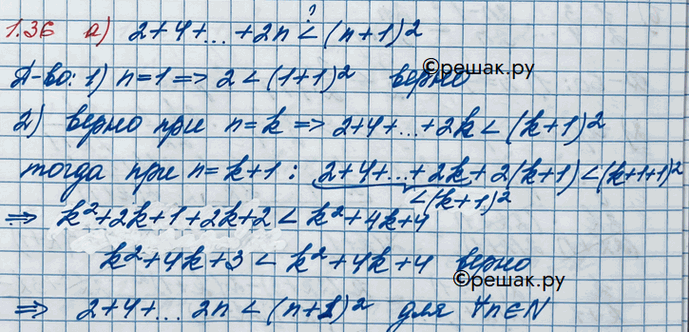 1.36 а) 2+4+...+2n <? (n+1)²
Д-во: 1) n=1 => 2 < (1+1)² верно
©решак.ру
2) верно при n=k => 2+4+...+2k < (k+1)²
тогда при n=k+1: 2+4+...+2k+2(k+1) < (k+1+1)²
< (k+1)²
=> k²+2k+1+2k+2 < k²+4k+4
k²+4k+3 < k²+4k+4 верно
©решак.ру
=> 2+4+... 2n < (n+1)² для ∀n∈N